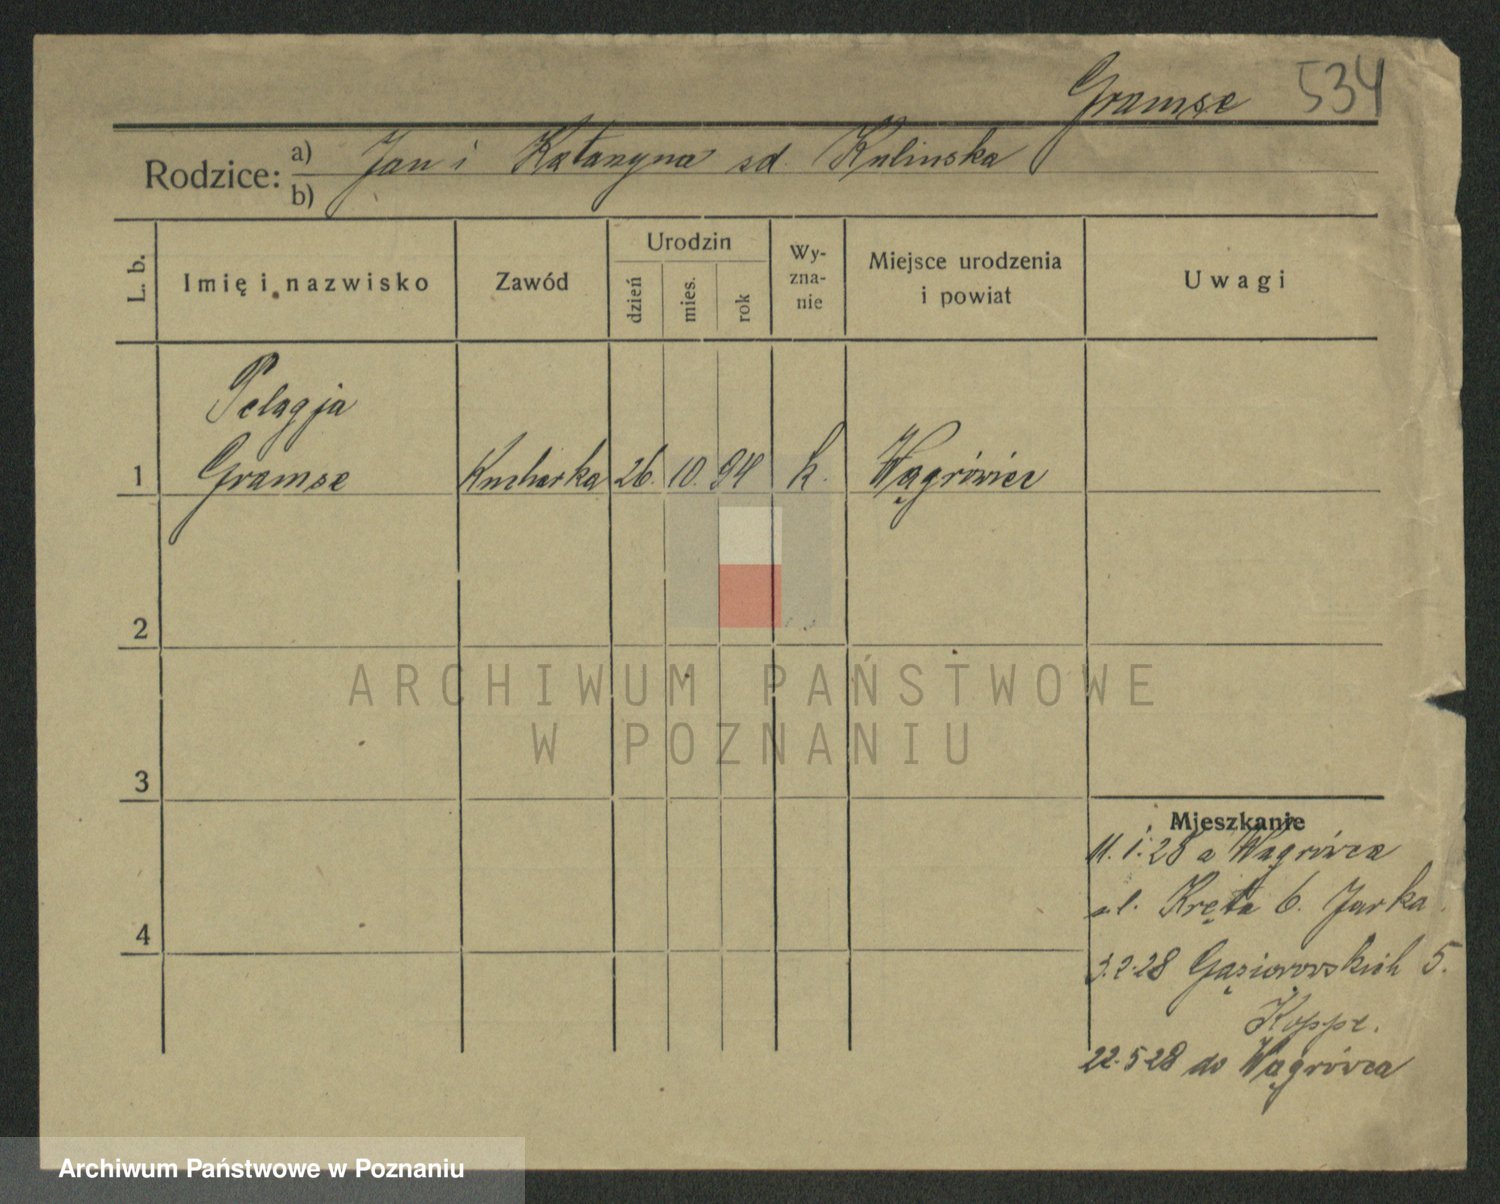 Gramse 534
Rodzice: a) Jan i Katarzyna sd. Kulinska
b)
L. b.
Imię i nazwisko
Zawód
Urodzin
dzień
mies.
rok
Wy-
zna-
nie
Miejsce urodzenia
i powiat
Uwagi
Pelagja
1 Gramse Kucharka 26. 10. 94 k. Wągrówiec
2
3
4
Mieszkanie
11.1.28 a Wągrówca
ul. Kręta 6. Jarka
3.2.28 Gąsiorowskich 5.
Koppe.
22.5.28 do Wągrówca
ARCHIWUM PAŃSTWOWE
W POZNANIU
Archiwum Państwowe w Poznaniu